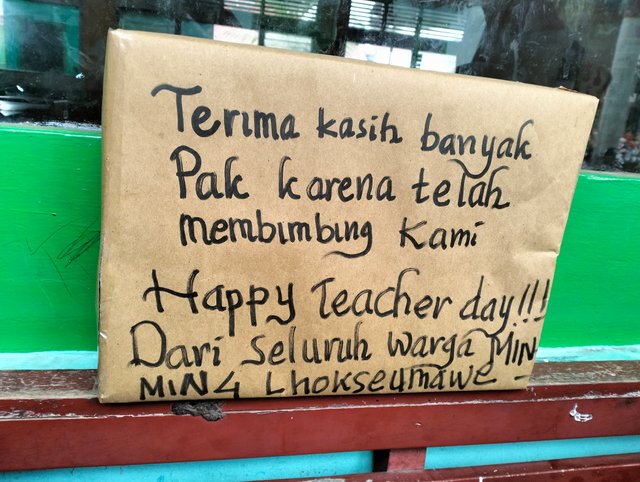 Terima kasih banyak
Pak karena telah
membimbing kami
Happy Teacher day!!!
Dari seluruh warga MIN
MIN 4 Lhokseumawe